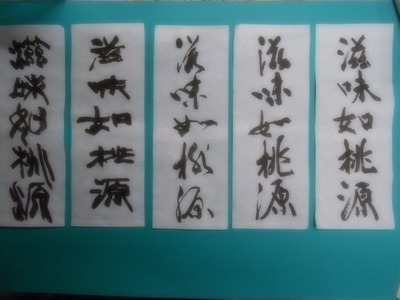 滋味如桃源
滋味如桃源
滋味如桃源
滋味如桃源
滋味如桃源